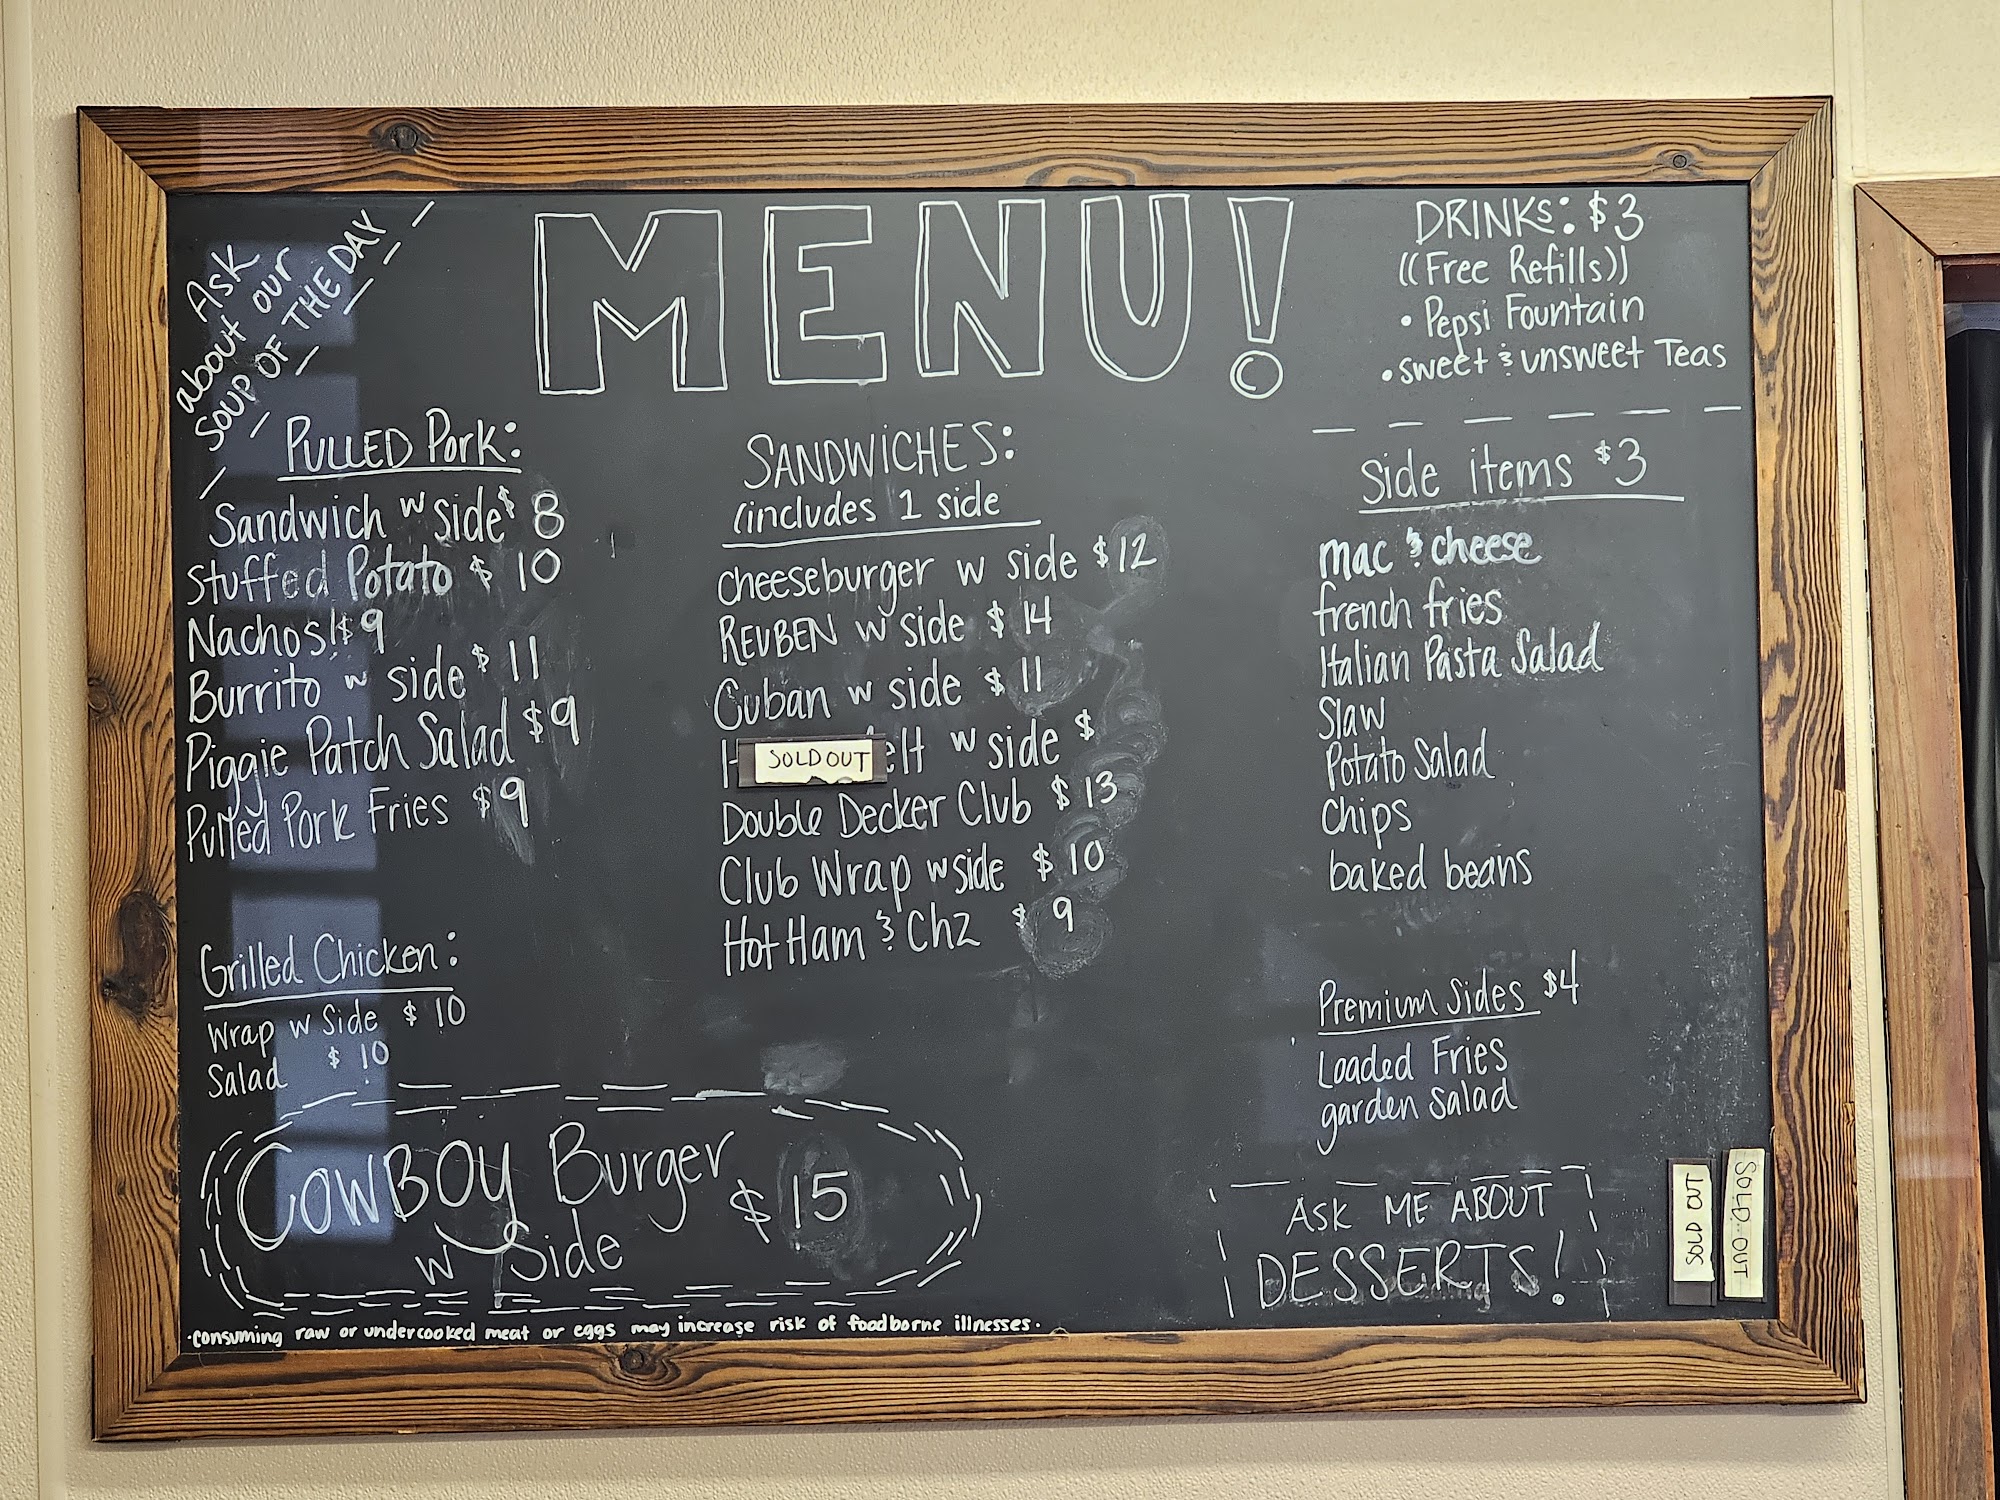 MENU!
Ask
about our
SOUP OF THE DAY
PULLED Pork:
Sandwich w side $8
Stuffed Potato $10
Nachos! $9
Burrito w side $11
Piggie Patch Salad $9
Pulled Pork Fries $9
Grilled Chicken:
Wrap w Side $10
Salad $10
COWBOY Burger $15
w Side
SANDWICHES:
(includes 1 side
cheeseburger w side $12
REUBEN w side $14
Cuban w side $11
SOLD OUT
w side $
Double Decker Club $13
Club Wrap w side $10
Hot Ham & Chz $9
DRINKS: $3
((Free Refills))
• Pepsi Fountain
• sweet & unsweet Teas
Side items $3
mac & cheese
french fries
Italian Pasta Salad
Slaw
Potato Salad
Chips
baked beans
Premium Sides $4
Loaded Fries
garden salad
ASK ME ABOUT
DESSERTS!
SOLD OUT
SOLD OUT
·consuming raw or undercooked meat or eggs may increase risk of foodborne illnesses.·